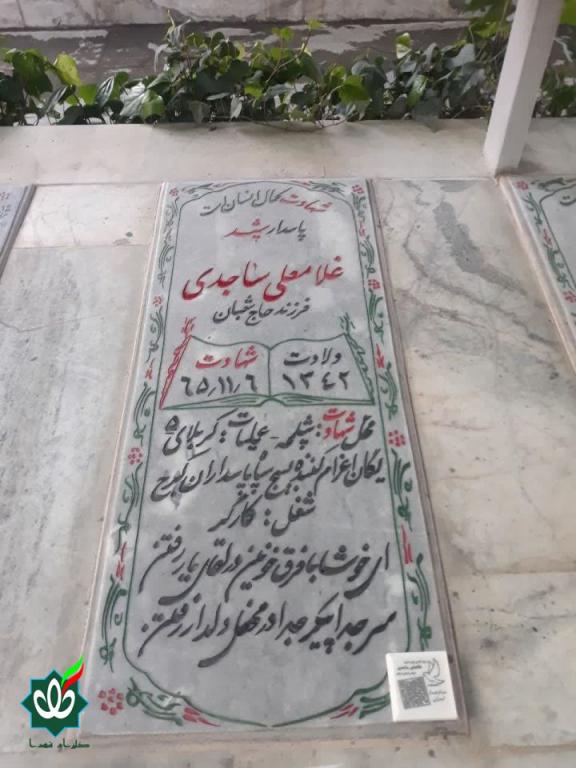 شهادت کمال انسان است
پاسدار شهید
غلامعلی ساجدی
فرزند حاج شعبان
ولادت
۱۳۴۲
شهادت
۶۵/۱۱/۶
محل شهادت: شلمچه - عملیات: کربلای ۵
یگان اعزام کننده بسیج سپاه پاسداران کرج
شغل: کارگر
ای خوشا با فرق خونین در لقای یار رفتن
سر جدا پیکر جدا در محفل دلدار رفتن
گلزار شهدا